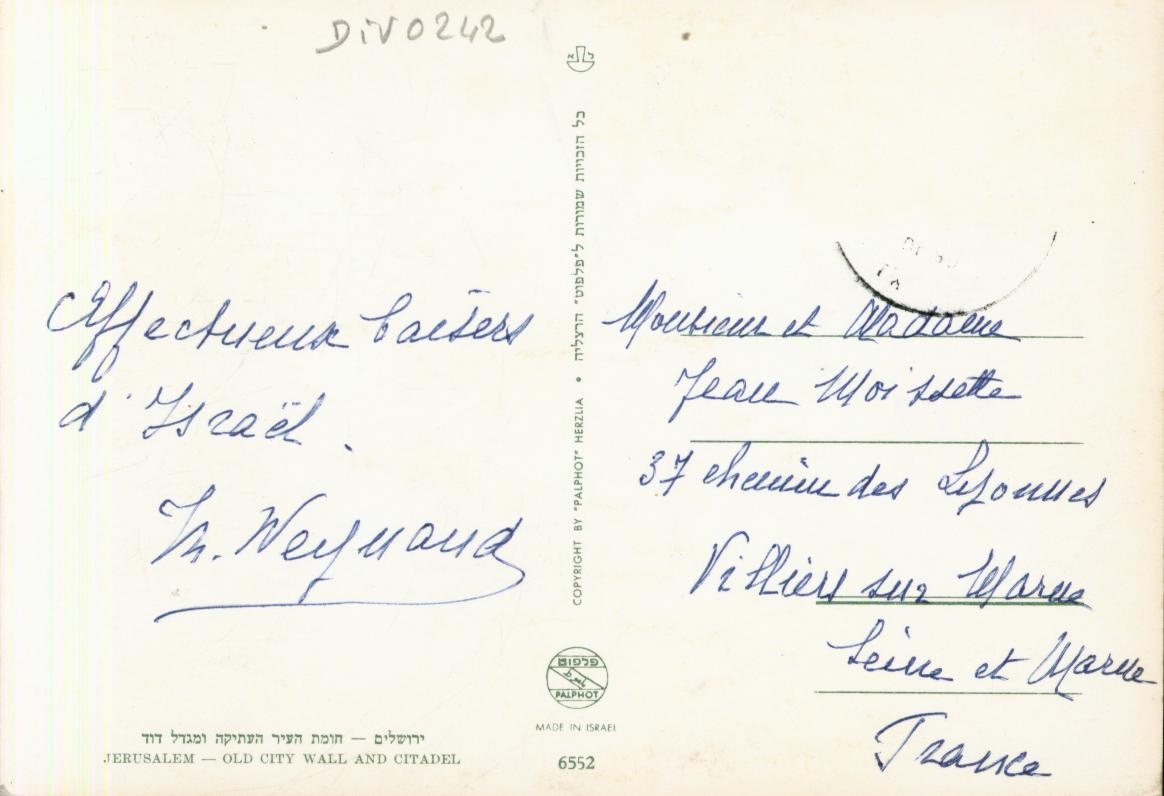 DIV0242
כל הזכויות שמורות ל"פלפוט" הרצליה • COPYRIGHT BY "PALPHOT" HERZLIA
Affectueux baisers
d'Israël.
M. Weynand
Monsieur et Madame
Jean Moissette
37 chemin des
Villiers sur Marne
Seine et Marne
France
פלפוט
PALPHOT
MADE IN ISRAEL
6552
ירושלים — חומת העיר העתיקה ומגדל דוד
JERUSALEM — OLD CITY WALL AND CITADEL